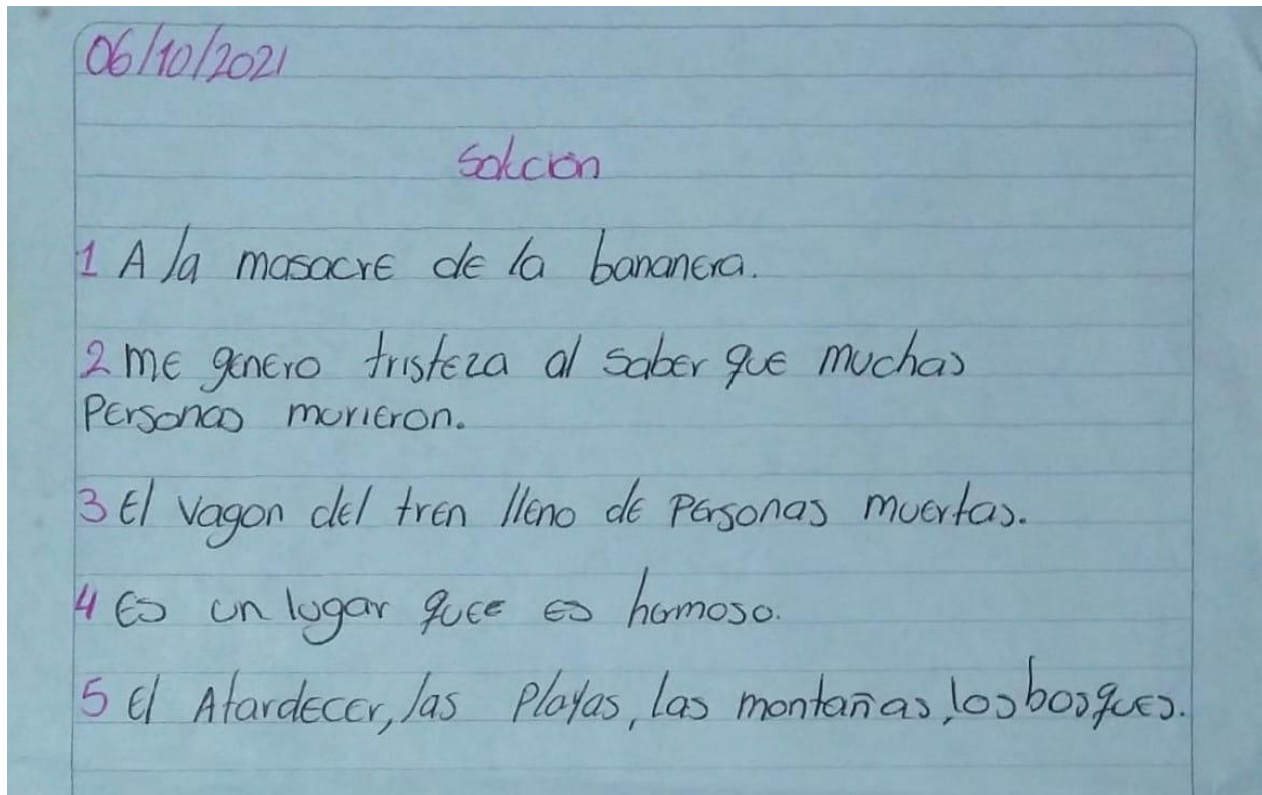 06/10/2021
Solución
1 A la masacre de la bananera.
2 me genero tristeza al saber que muchas
Personas murieron.
3 El vagon del tren lleno de Personas muertas.
4 Es un lugar quee es hermoso.
5 El Atardecer, las Playas, las montañas, los bosques.